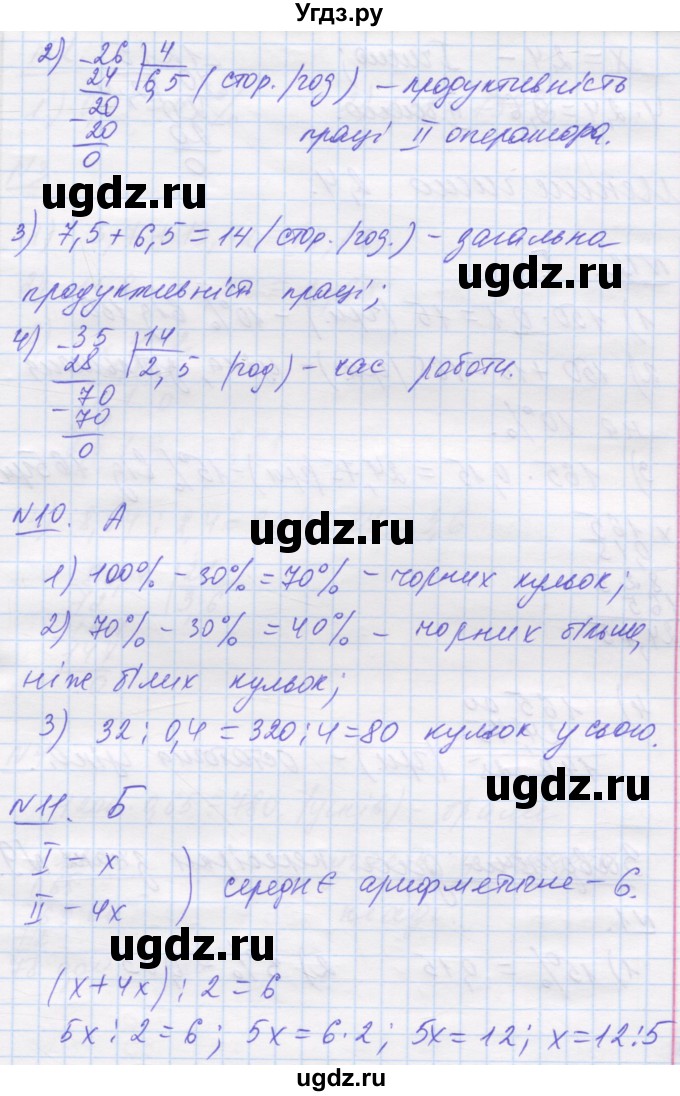 Угдз.ру
2) 26 | 4
24 | 6,5 (стор./год) – продуктивність
20
20 праці II оператора.
0
ugdz.ru
3) 7,5 + 6,5 = 14 (стор./год.) – загальна
ugdz.ru
продуктивність праці;
4) 35 | 14
28 | 2,5 (год) – час роботи.
70
70
0
ugdz.ru
№10. А
1) 100% – 30% = 70% – чорних кульок;
2) 70% – 30% = 40% – чорних більш,
ніж білих кульок;
3) 32 : 0,4 = 320 : 4 = 80 кульок усього.
ugdz.ru
№11. Б
I – x
II – 4x ) середнє арифметичне – 6.
ugdz.ru
(x + 4x) : 2 = 6
5x : 2 = 6; 5x = 6·2; 5x = 12; x = 12:5
ugdz.ru